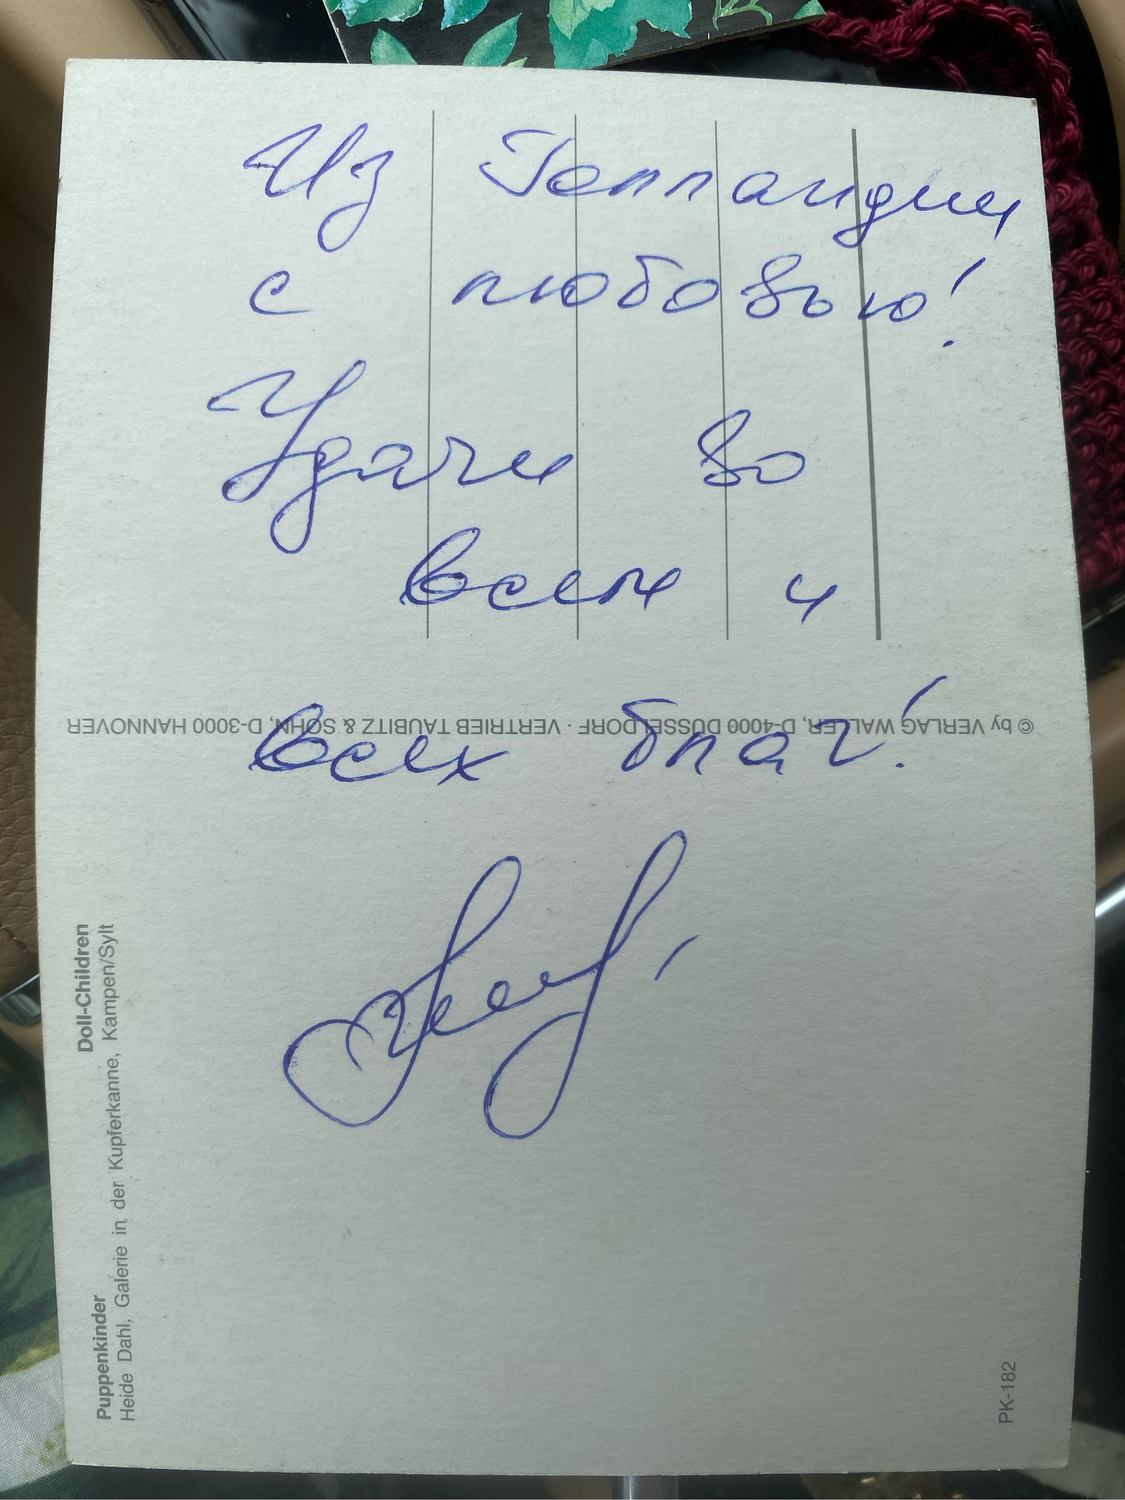 Из Голландии
с любовью!
Удачи во
всем и
всех благ!
© by VERLAG WALLER, D-4000 DÜSSELDORF · VERTRIEB TAUBITZ & SOHN, D-3000 HANNOVER
Puppenkinder Doll-Children
Heide Dahl, Galerie in der Kupferkanne, Kampen/Sylt
PK-182